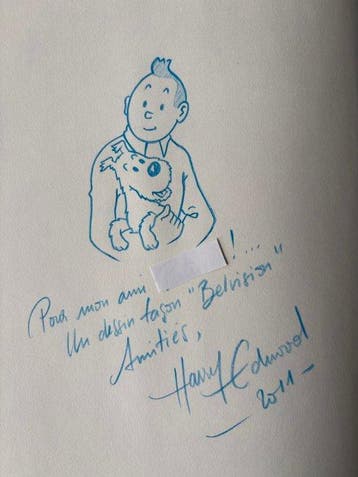 Pour mon ami !...
Un dessin façon "Belvision"
Amitiés,
Harry Edwood
2011-